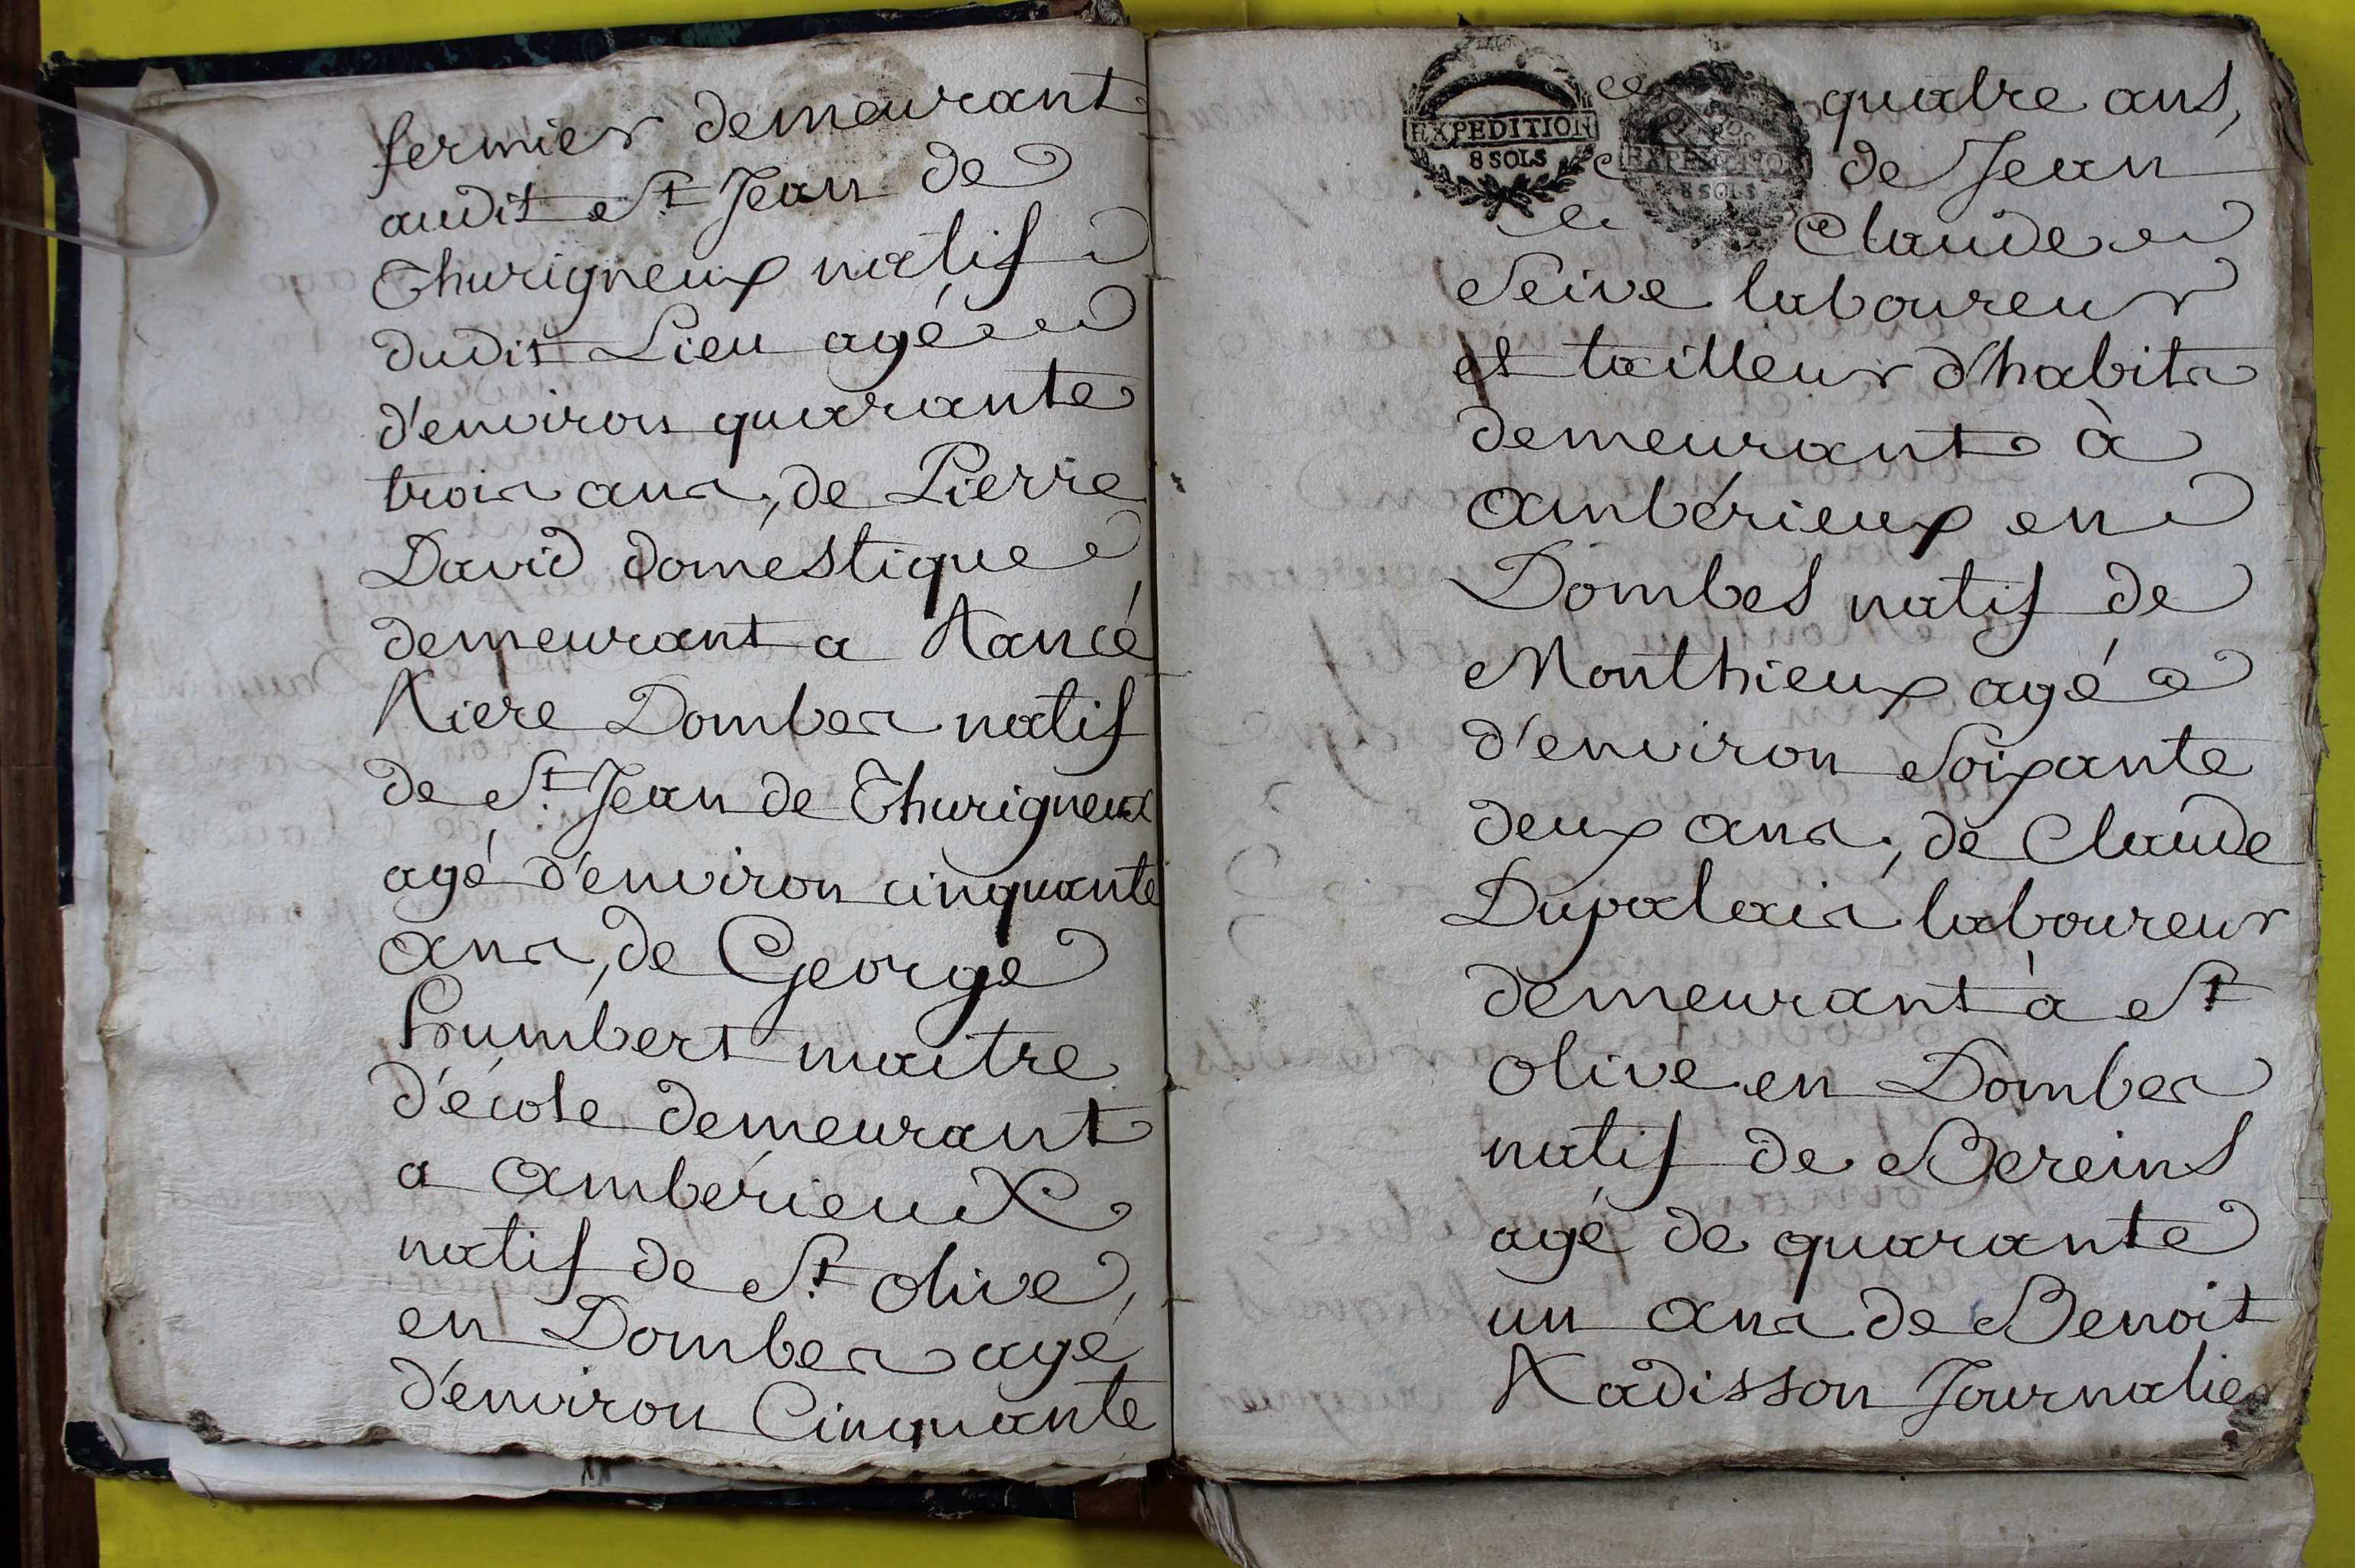 fermier demeurant
audit St Jean de
Thurigneux natif
dudit Lieu agé
d'environ quarante
trois ans, de Pierre
David domestique
demeurant a Rancé
Riere Dombes natif
de St Jean de Thurigneux
agé d'environ cinquante
ans, de George
humbert maitre
d'école demeurant
a ambérieux
natif de St olive,
en Dombes agé
d'environ Cinquante
EXPEDITION
8 SOLS
EXPEDITION
8 SOLS
quatre ans,
de Jean
Claude
Seive laboureur
et tailleur d'habits
demeurant à
ambérieux en
Dombes natif de
Monthieux agé
d'environ Soixante
deux ans, de Claude
Dupalais laboureur
demeurant à St
olive en Dombes
natif de Bereins
agé de quarante
un ans de Benoit
Radisson Journalier